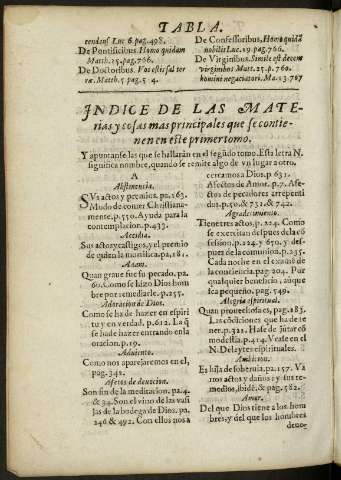 TABLA.
tendens Luc 6. pag. 498.
De Pontificibus. Homo quidam
Matth. 25. pag. 766.
De Doctoribus. Vos estis sal ter
ræ. Matth. 5. pag. 5 4.
De Confessoribus. Homo quidã
nobilis Luc. 19. pag. 766.
De Virginibus. Simile est decem
virginibus Matt. 25. p. 760.
homini negotiatori. Ma. 13. 767
INDICE DE LAS MATE-
rias y cosas mas principales que se contie-
nen en este primer tomo.
Y apuntanse las que se hallaràn en el segũdo tomo. Esta letra N.
significa nombre, quando se remite algo de vn lugar a otro.
A
Abstinencia.
SVs actos y precanios. pa. 163.
Modo de comer Christiana-
mente. p. 550. Ayuda para la
contemplacion. p. 433.
Accidia.
Sus actos y castigos, y el premio
de quien la mortifica. pa. 181.
Adam.
Quan graue fue su pecado. pa.
60. Como se hizo Dios hom
bre por remediarle. p. 255.
Adoracion de Dios.
Como se ha de hazer en espiri
tu y en verdad. p. 612. La q̃
se ha de hazer entrando en la
oracion. p. 19.
Aduiento.
Como nos aparejaremos en el.
pag. 342.
Afetos de deuocion.
Son fin de la meditacion. pa. 4.
& 34. Son el vino de las vasi
jas de la bodega de Dios. pa.
246 & 492. Con ellos nos a
cercamos a Dios. p. 631.
Afectos de Amor. p. 7. Afec-
tos de pecadores arrepenti
dos. p. 50. & 731. & 742.
Agradecimiento.
Tiene tres actos. p. 224. Como
se exercitan despues de la cõ
fession. p. 224. y 650. y des-
pues de la comunion. p. 235.
Cada noche en el examẽ de
la conciencia. pag. 204. Por
qualquier beneficio, aunque
sea pequeño. pag. 549.
Alegria espiritual.
Quan prouechosa es, pag. 283.
Las cõdiciones que ha de te
ner. p. 321. Hase de jũtar cõ
modestia. p. 414. Vease en el
N. Deleytes espirituales.
Ambicion.
Es hija de soberuia. pa. 157. Va
rios actos y daños y sus re-
medios, ibidẽ, & pag. 582.
Amor.
Del que Dios tiene a los hom
bres, y del que los hombres